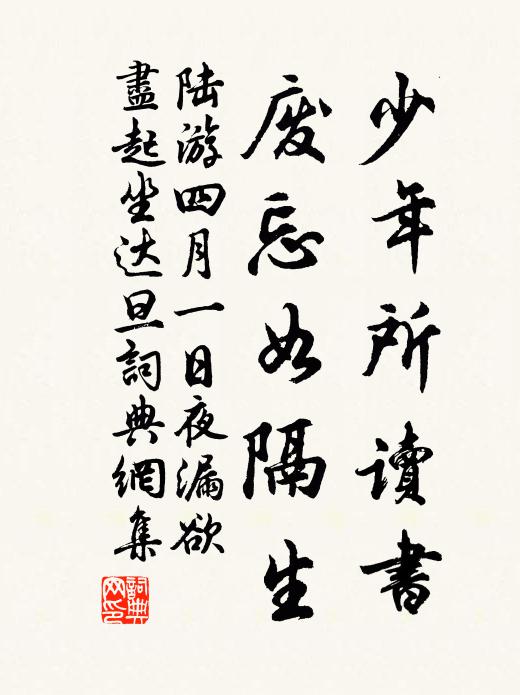 少年所讀書
废忘如隔生
陆游四月一日夜漏欲
盡起坐达旦詞典網集
詞典
网印